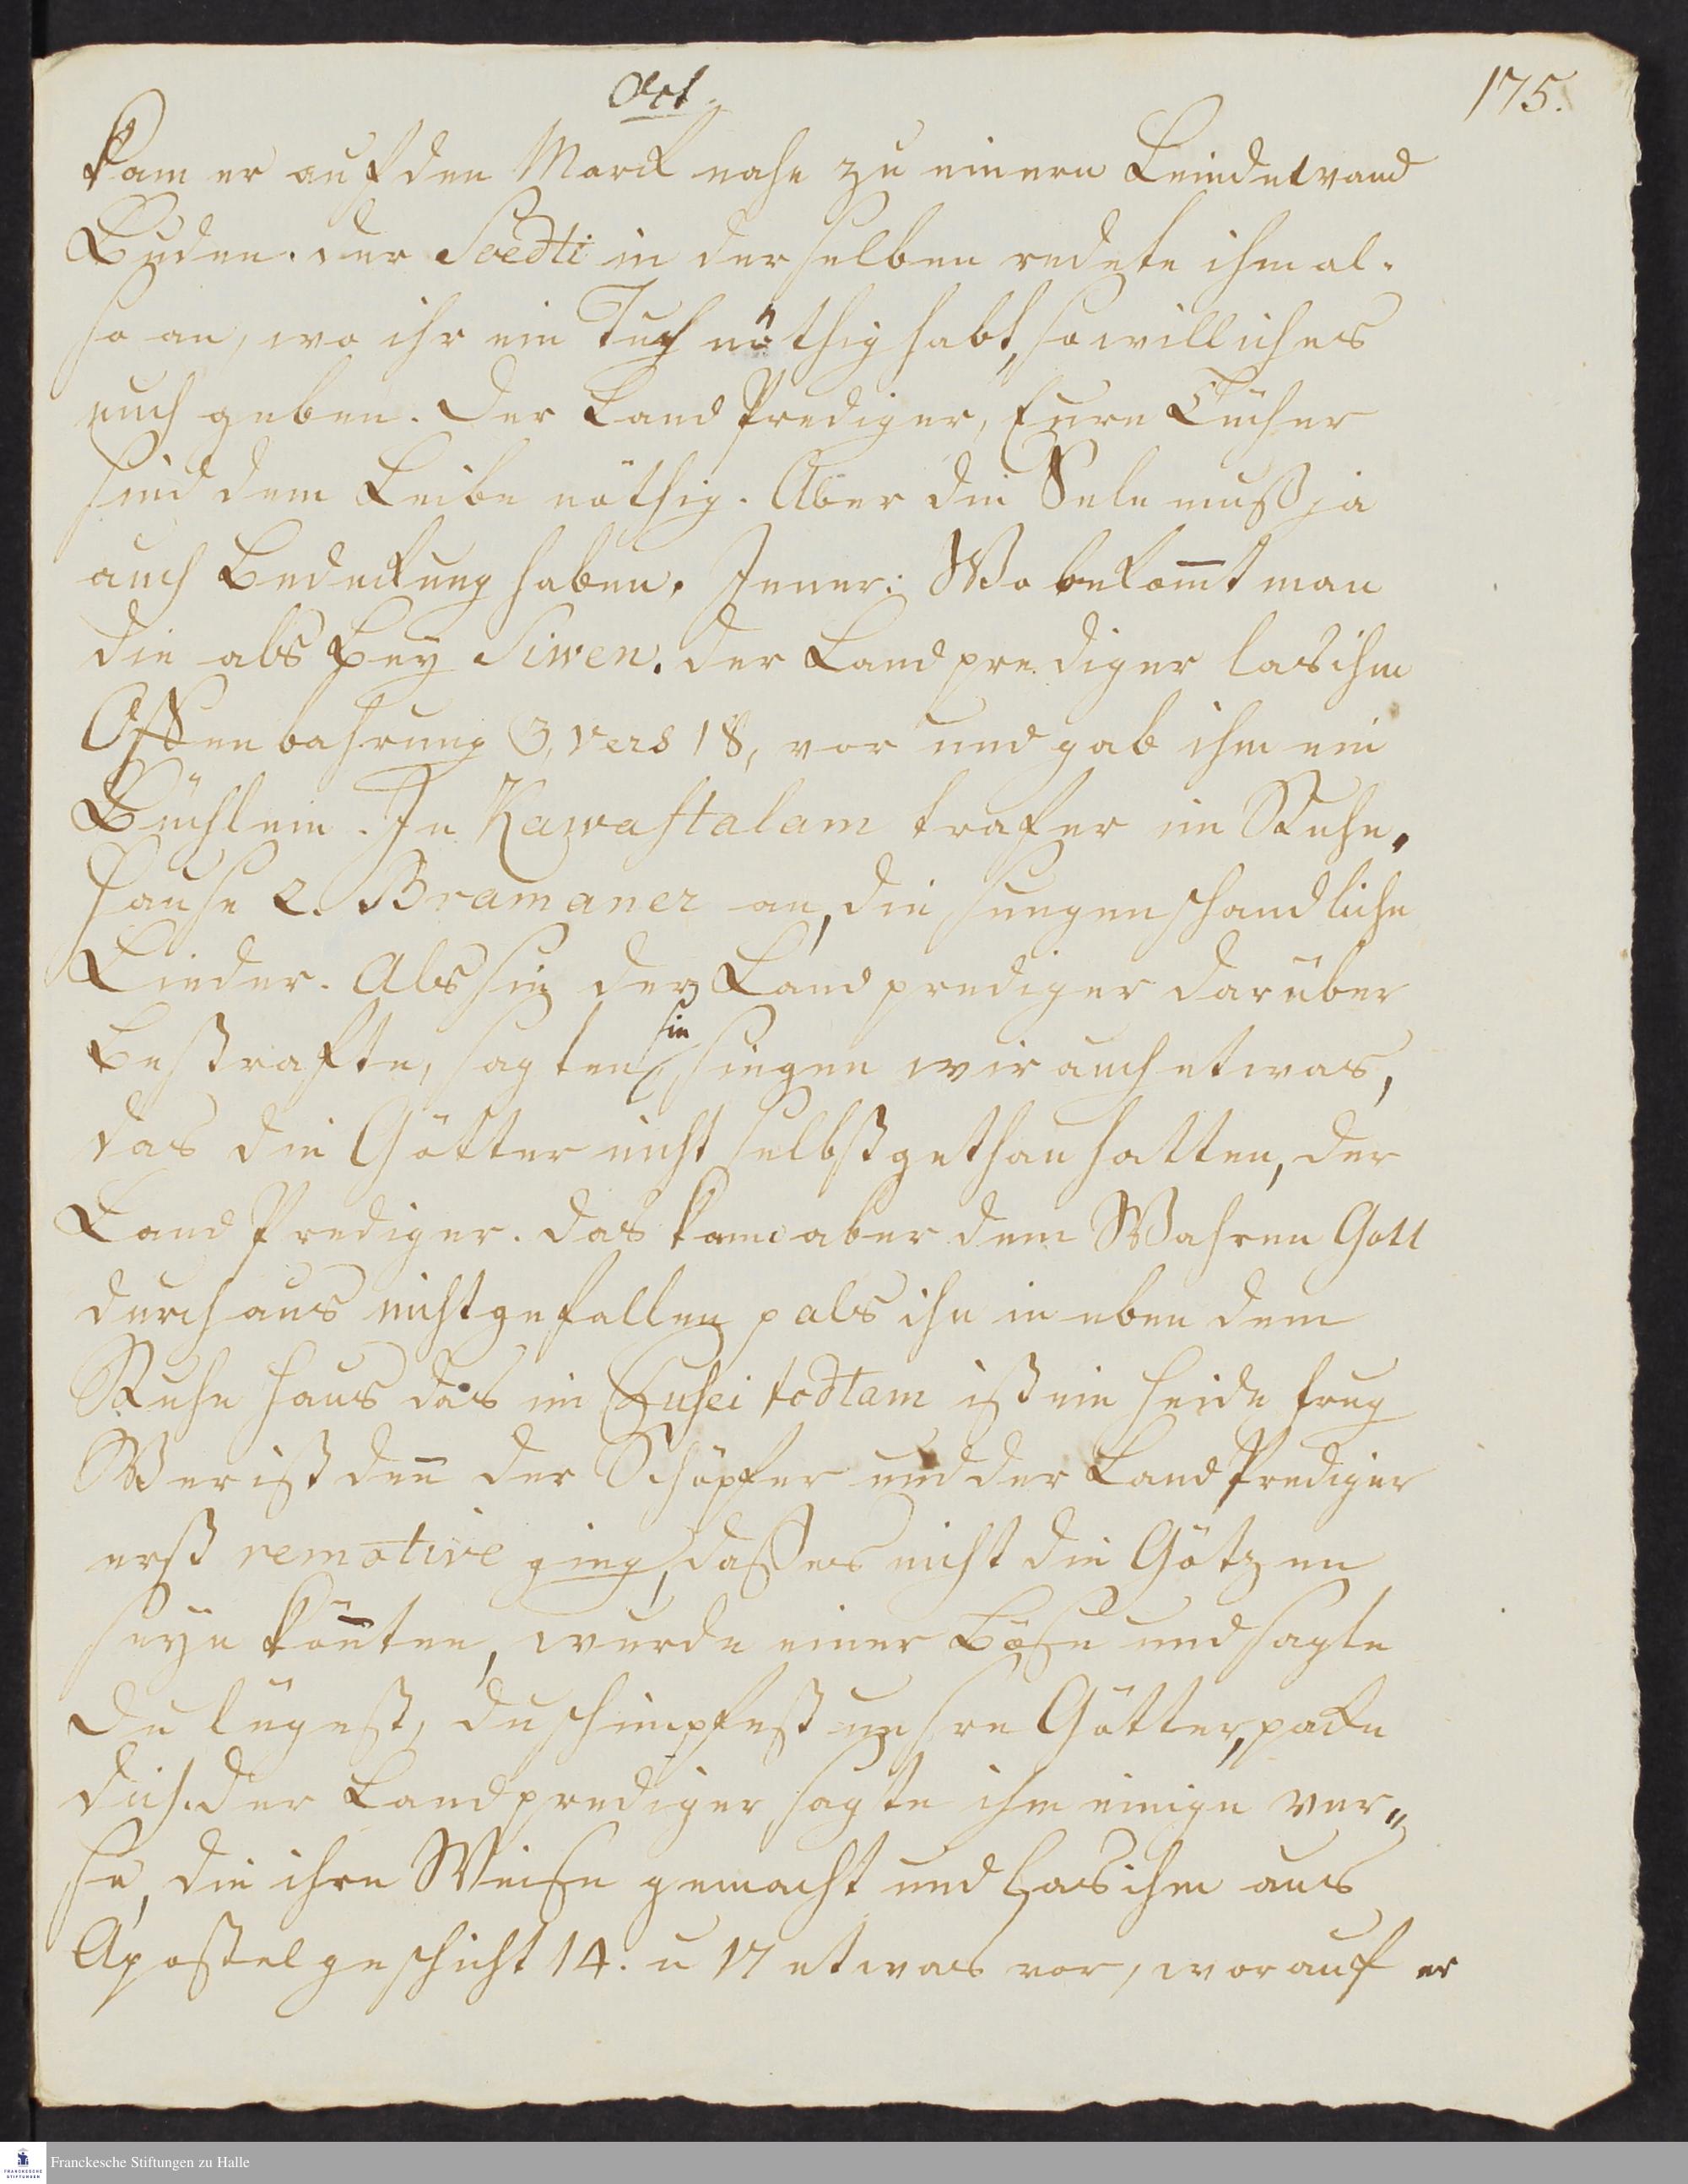 Oct.
175.
kam er auf den Marck nahe zu einern Leindewand
Buden. der Soedti in derselben redete ihm al-
so an, wo ihr ein Tuch nöthig habt, so will ich es
euch geben. der Land Prediger, Eure Tücher
sind dem Leibe nöthig. Aber die Sele muß ja
auch Bedeckung haben. Jener: Wo bekom̄t man
die als bey Siwen. der Landprediger las ihm
Offenbahrung 3, vers 18, vor und gab ihm ein
Büchlein. In Kawastalam traf er im Ruhe-
hause 2. Bramaner an, die sungen schandliche
Lieder. Als sie der Landprediger darüber
bestrafte, sagten sie singen wir auch etwas,
das die Götter nicht selbst gethan hatten, der
Land Prediger. das kann aber dem Wahren Gott
durchaus nicht gefallen p als ihn in eben dem
Ruhe Haus das im todtam ist ein Heide frug
Wer ist den̄ der Schöpfer und der Land Prediger
erst remotive ging, daß es nicht die Götzen
seyn kön̄ten, wurde einer Böse und sagte
du lügest, du schimpfest unsre Götter, packe
dich. der Landprediger sagte ihm einige ver„
se, die ihre Weise gemacht und las ihm aus
Apostelgeschicht 14. u 17 etwas vor, worauf er
Franckesche Stiftungen zu Halle